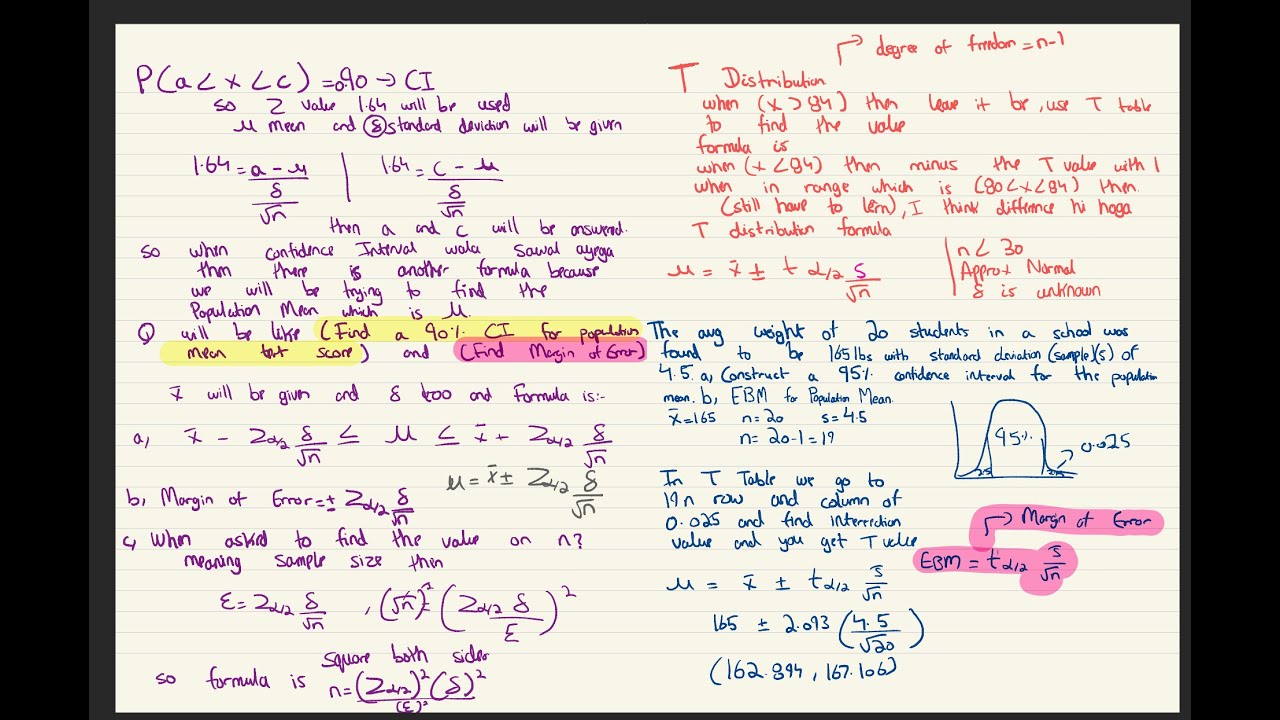 P(a < x < c) = 0.90 → CI
so Z value 1.64 will be used
μ mean and δ standard deviation will be given
1.64 = a - μ / δ/√n | 1.64 = c - μ / δ/√n
then a and c will be answered.
so when confidence Interval wala sawal ayega
then there is another formula because
we will be trying to find the
Population Mean which is μ.
Q will be like (Find a 90% CI for population
mean test score) and (Find Margin of Error)
x̄ will be given and δ too and Formula is:-
a, x̄ - Zα/2 δ/√n ≤ μ ≤ x̄ + Zα/2 δ/√n
μ = x̄ ± Zα/2 δ/√n
b, Margin of Error = ± Zα/2 δ/√n
c, When asked to find the value on n?
meaning sample size then
ε = Zα/2 δ/√n , (√n)² = (Zα/2 δ / ε)²
square both sides
so formula is n = (Zα/2)² (δ)² / (ε)²
degree of freedom = n-1
T Distribution
when (x > 84) then leave it be, use T table
to find the value
formula is
when (x < 84) then minus the T value with 1
when in range which is (80 < x < 84) then
(still have to lern), I think difference hi hoga
T distribution formula
μ = x̄ ± tα/2 S/√n
n < 30
Approx Normal
δ is unknown
The avg weight of 20 students in a school was
found to be 165 lbs with standard deviation (sample)(s) of
4.5. a, Construct a 95% confidence interval for the population
mean. b, EBM for Population Mean.
x̄ = 165 n = 20 s = 4.5
n = 20-1 = 19
95%
0.025
In T Table we go to
19 n row and column of
0.025 and find intersection
value and you get T value
Margin of Error
EBM = tα/2 s/√n
μ = x̄ ± tα/2 s/√n
165 ± 2.093 (4.5/√20)
(162.894, 167.106)